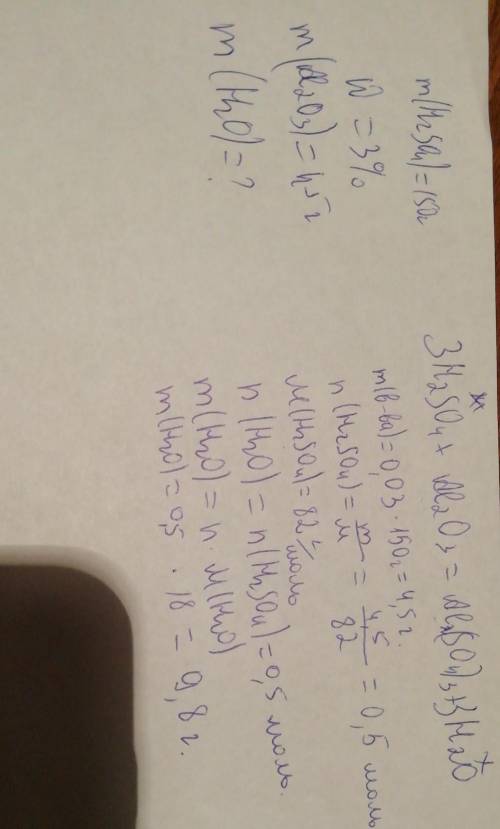 m(H₂SO₄)=150г
W = 3%
m(Al₂O₃)=45г
m(H₂O)=?
3H₂SO₄ + Al₂O₃ = Al₂(SO₄)₃+3H₂O
m(в-ва)=0,03·150г=4,5г.
n(H₂SO₄)= m/M = 4,5/82 = 0,5 моль
M(H₂SO₄)=82 г/моль
n(H₂O) = n(H₂SO₄)=0,5 моль.
m(H₂O) = n·M(H₂O)
m(H₂O)=0,5 · 18 = 9,8г.